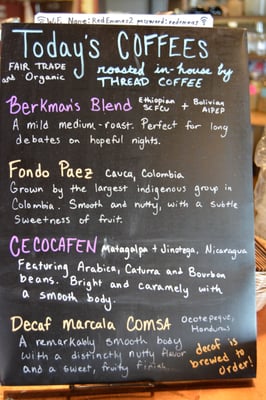 Wi Fi Name: RedEmmas2 password: redemmas
Today's COFFEES
FAIR TRADE
and Organic
roasted in-house by
THREAD COFFEE
Berkman's Blend Ethiopian SCFCU + Bolivian AIPEP
A mild medium-roast. Perfect for long
debates on hopeful nights.
Fondo Paez Cauca, Colombia
Grown by the largest indigenous group in
Colombia. Smooth and nutty, with a subtle
sweetness of fruit.
CECOCAFEN Matagalpa + Jinotega, Nicaragua
Featuring Arabica, Caturra and Bourbon
beans. Bright and caramely with
a smooth body.
Decaf marcala COMSA Ocotepeque,
Honduras
A remarkably smooth body
with a distinctly nutty flavor
and a sweet, fruity finish.
decaf is
brewed to
order!